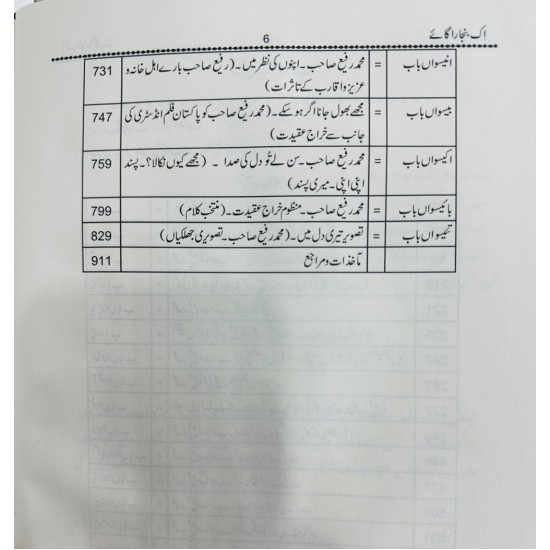 اِک بنجارا گائے 6
انیسواں باب = محمد رفیع صاحب۔ اپنوں کی نظر میں۔ (رفیع صاحب بارے اہل خانہ و 731
عزیز و اقارب کے تاثرات)
بیسواں باب = مجھے بھول جانا اگر ہو سکے۔ (محمد رفیع صاحب کو پاکستان فلم انڈسٹری کی 747
جانب سے خراج عقیدت)
اکیسواں باب = محمد رفیع صاحب۔ سن لے تُو دل کی صدا ۔ (مجھے کیوں نکالا؟۔ پسند 759
اپنی اپنی۔ میری پسند)
بائیسواں باب = محمد رفیع صاحب۔ منظوم خراج عقیدت۔ (منتخب کلام) 799
تئیسواں باب = تصویر تیری دل میں۔ (محمد رفیع صاحب۔ تصویری جھلکیاں) 829
مآخذات و مراجع 911